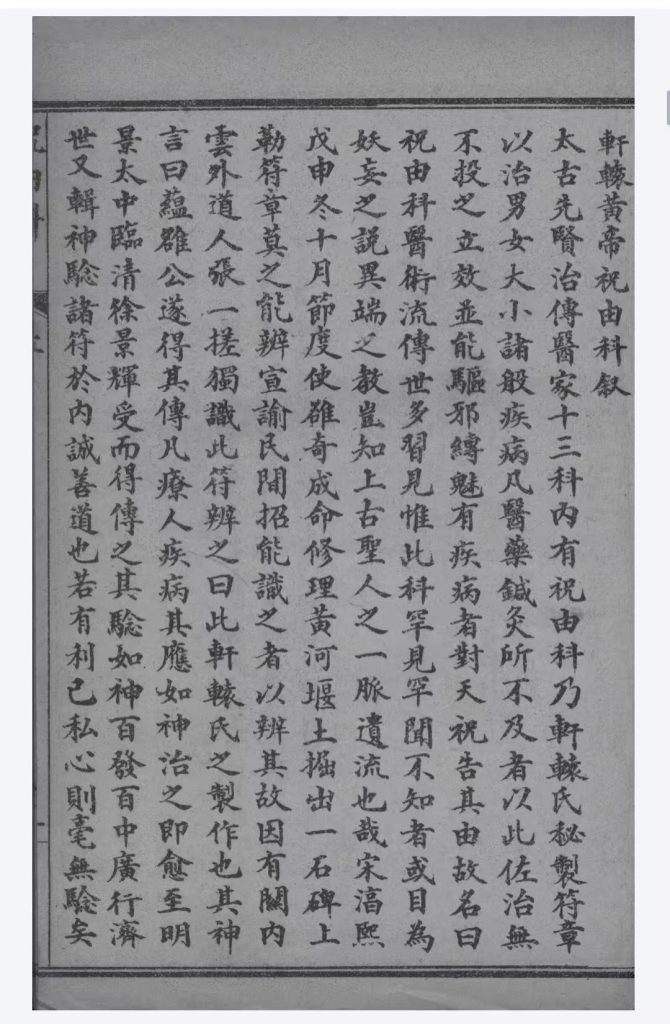 軒轅黃帝祝由科叙
太古先賢治傳醫家十三科內有祝由科乃軒轅氏秘製符章
以治男女大小諸般疾病凡醫藥鍼灸所不及者以此佐治無
不投之立效並能驅邪縛魅有疾病者對天祝告其由故名曰
祝由科醫術流傳世多習見惟此科罕見罕聞不知者或目為
妖妄之說異端之教豈知上古聖人之一脈遺流也哉宋淳熙
戊申冬十月節度使雒奇成命修理黃河堰土掘出一石碑上
勒符章莫之能辨宣諭民間招能識之者以辨其故因有關內
雲外道人張一搓獨識此符辨之曰此軒轅氏之製作也其神
言曰蘊雒公遂得其傳凡療人疾病其應如神治之即愈至明
景太中臨清徐景輝受而得傳之其驗如神百發百中廣行濟
世又輯神驗諸符於內誠善道也若有利己私心則毫無驗矣